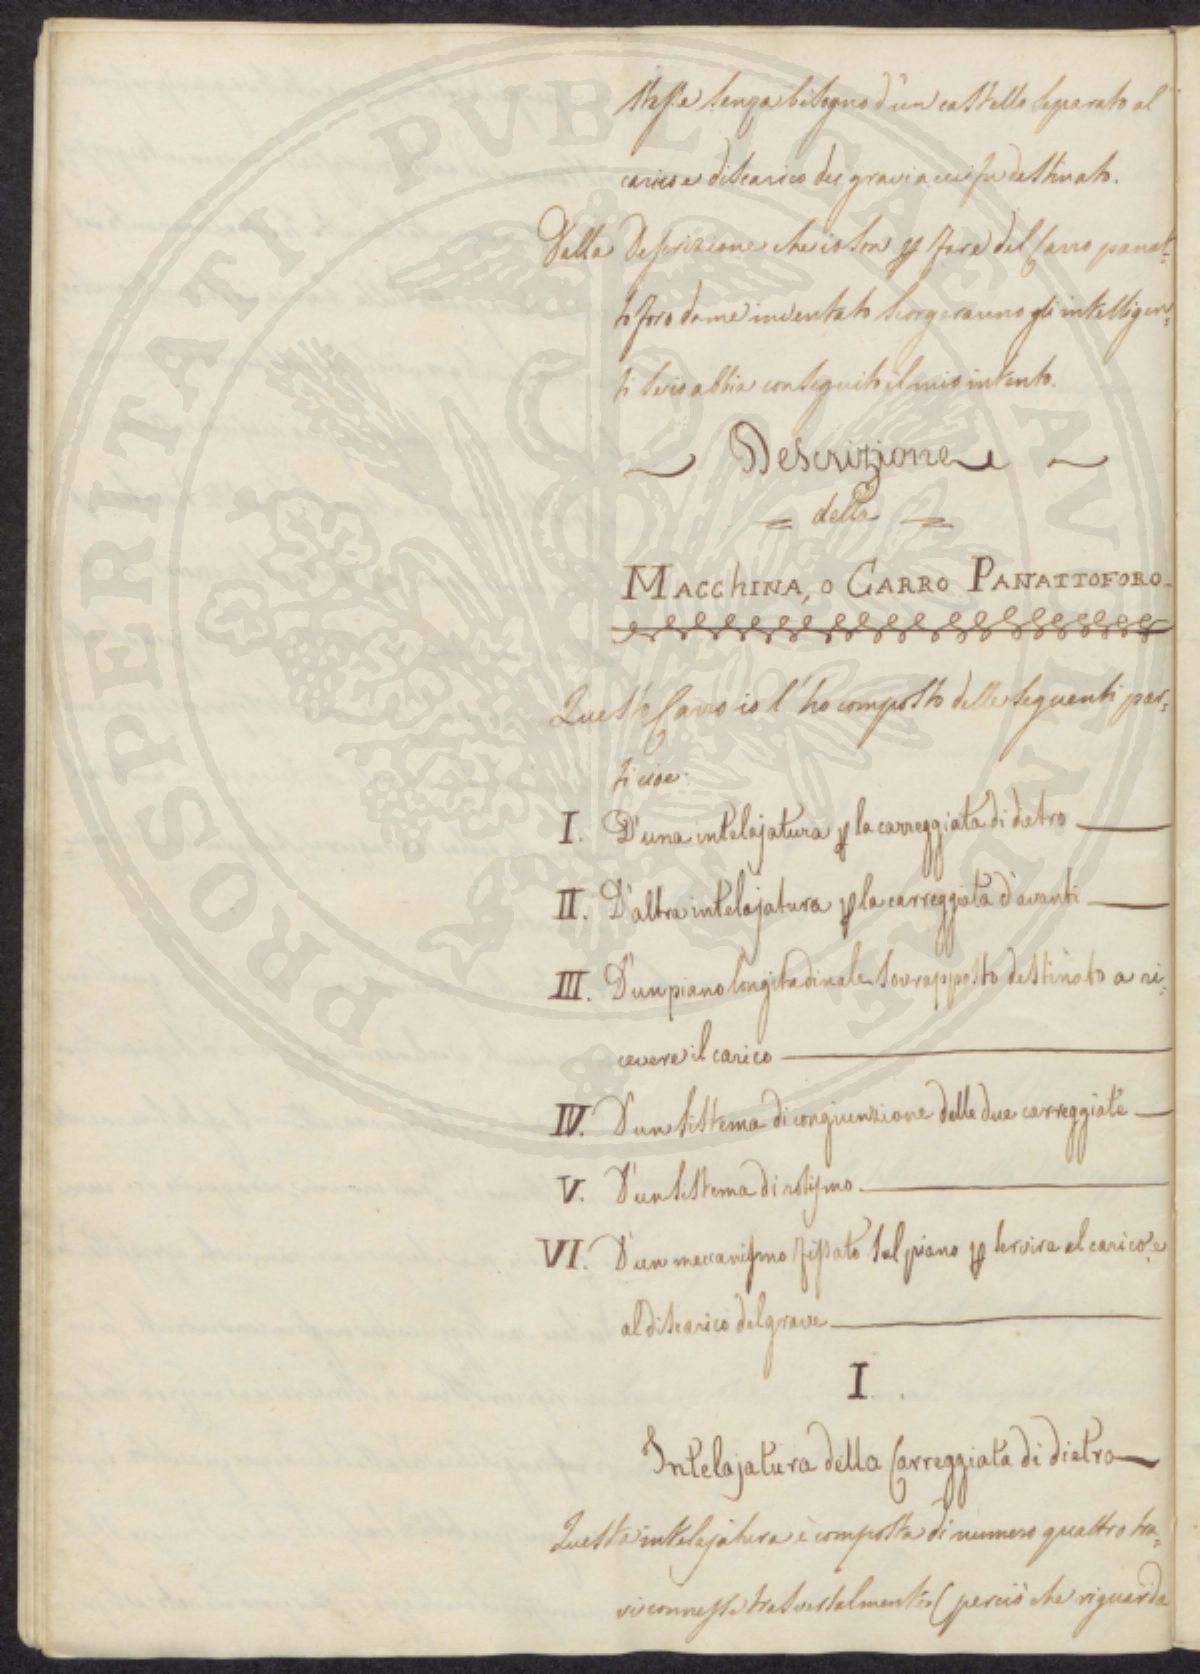 stesse senza bisogno d'un castello separato al
carico e discarico dei gravi a cui fu destinato.
Dalla Descrizione che io son p fare del Carro panat=
toforo da me inventato scorgeranno gli intelligen=
ti se io abbia conseguito il mio intento.
Descrizione
della
MACCHINA, O CARRO PANATTOFORO
Questo Carro io l'ho composto delle seguenti par=
ti cioe:
I. D'una intelajatura p la carreggiata di dietro
II. D'altra intelajatura p la carreggiata d'avanti
III. D'un piano longitudinale sovrapposto destinato a ri=
cevere il carico
IV. D'un sistema di congiunzione delle due carreggiate
V. D'un sistema di rotismo
VI. D'un meccanismo fissato sul piano p servire al carico, e
al discarico del grave
I.
Intelajatura della Carreggiata di dietro
Questa intelajatura è composta di numero quattro tra=
vi connesse trasversalmente (perciò che riguarda
PROSPERITATI PVBLICAE AVGENDAE